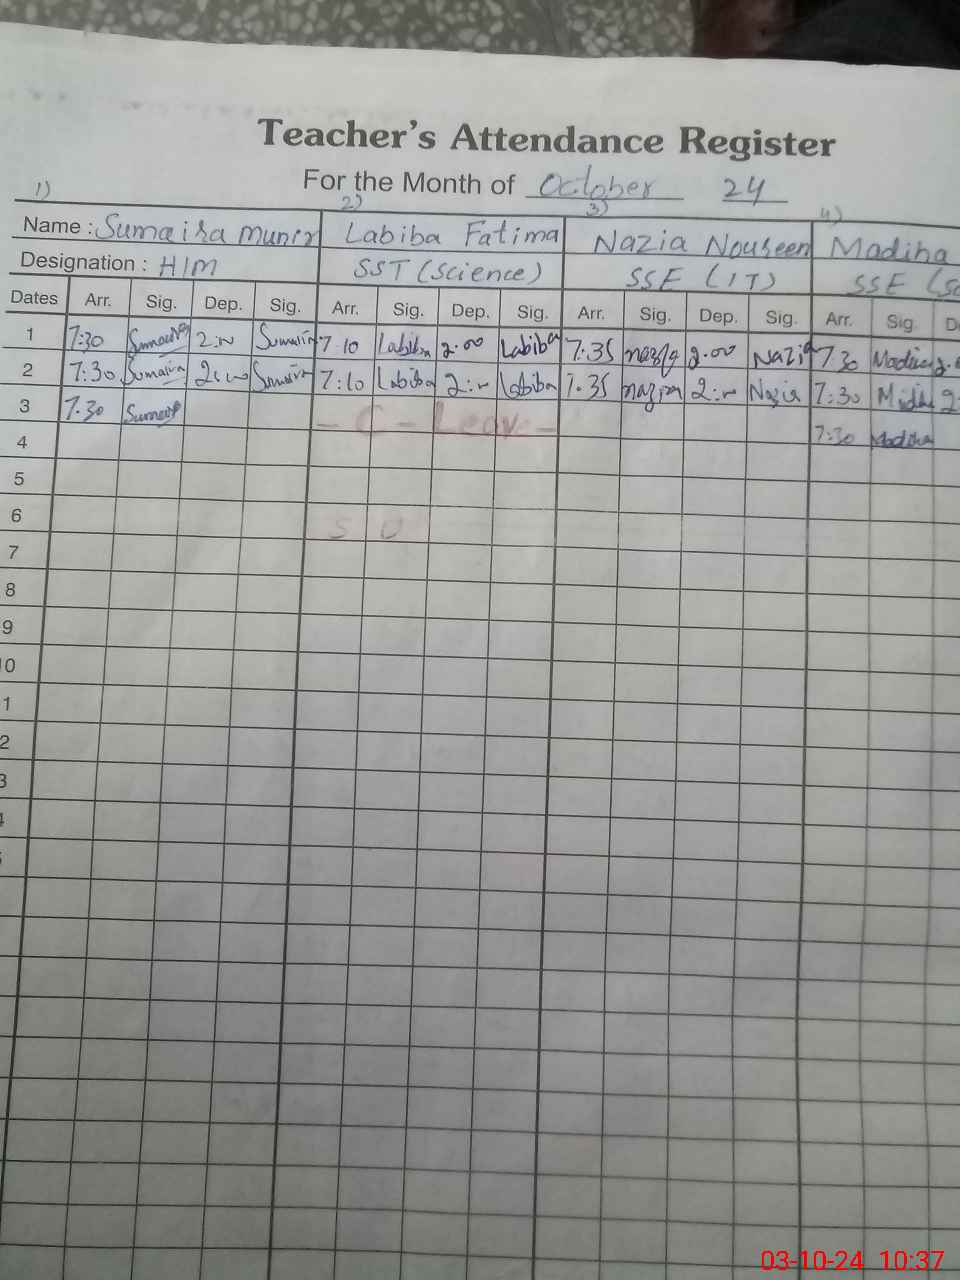 Teacher's Attendance Register
For the Month of October 24
1) 2) 3) 4)
Name : Sumaira Munir Labiba Fatima Nazia Nouseen Madiha
Designation : H/M SST (Science) SSE (IT) SSE (Sc
Dates Arr. Sig. Dep. Sig. Arr. Sig. Dep. Sig. Arr. Sig. Dep. Sig. Arr. Sig. D
1 7:30 Sumaira 2:00 Sumaira 7:10 Labiba 2.00 Labiba 7.35 Nazia 2.00 Nazia 7.30 Madiha 2.
2 7:30 Sumaira 2:00 Sumaira 7:10 Labiba 2:00 Labiba 7.35 Nazia 2:00 Nazia 7:30 Madiha 2:
3 7.30 Sumaira - C - Leave -
4 7:30 Madiha
5
6 S U
7
8
9
0
1
2
3
4
03-10-24 10:37